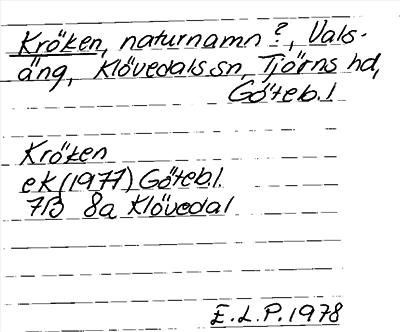 Kröken, naturnamn ?, Vals-
äng, Klövedals sn, Tjörns hd,
Göteb. l
Kröken
ek (1977) Göteb.l.
7B 8a Klövedal
E.L.P. 1978